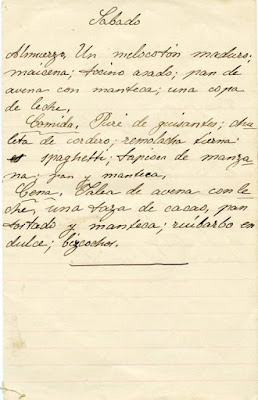 Sabado
Almuerzo, Un melocotón maduro;
maicena; tocino asado; pan de
avena con manteca; una copa
de leche,
Comida, Puré de guisantes; chu
leta de cordero; remolacha tierna
spaghetti; tapioca de manza
na; pan y manteca,
Cena, Jalea de avena con le
che, una taza de cacao, pan
tostado y manteca; ruibarbo en
dulce; bizcochos.